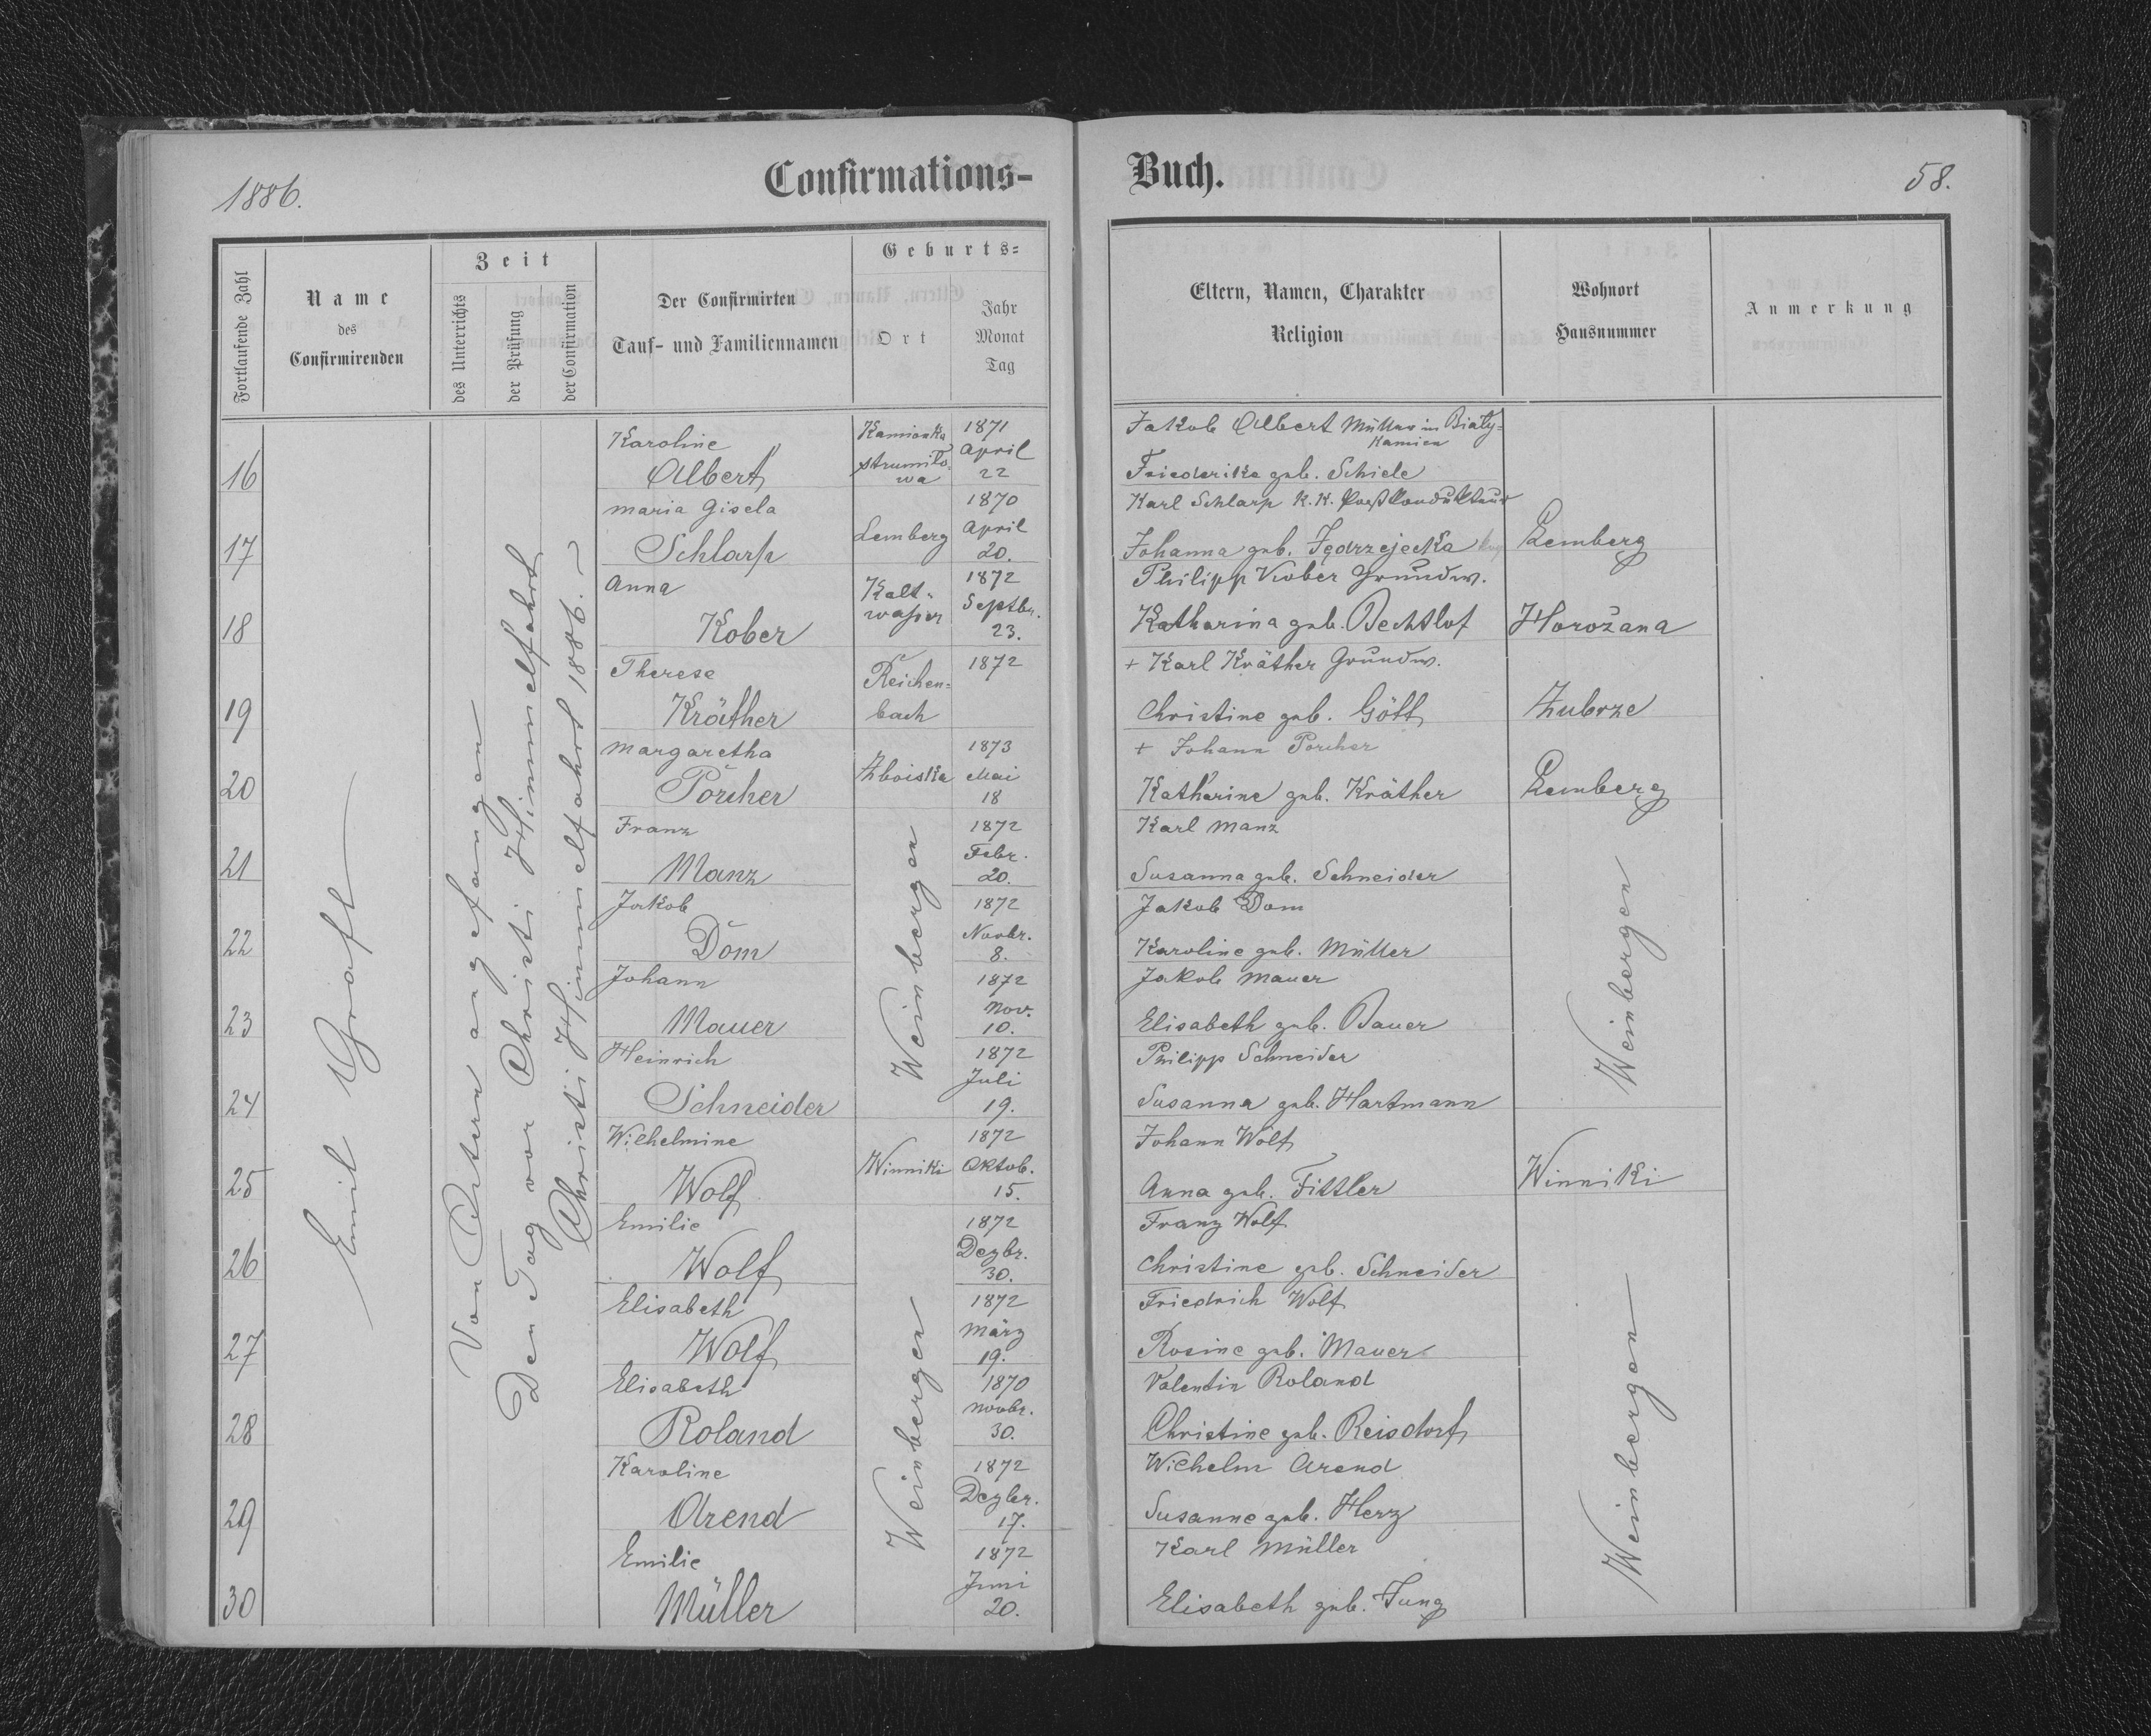 1886.
Confirmations-
Buch.
58.
Fortlaufende Zahl
Name
des
Confirmirenden
Zeit
des Unterrichts
der Prüfung
der Confirmation
Der Confirmirten
Tauf- und Familiennamen
Geburts-
Ort
Jahr
Monat
Tag
Eltern, Namen, Charakter
Religion
Wohnort
Hausnummer
Anmerkung
Emil Graft
Von Ostern angefangen
Den Tag vor Christi Himmelfahrt
Christi Himmelfahrt 1886.
16
Karoline
Albert
Kamionka
strumiło-
wa
1871
April
22
Jakob Albert Müller in Biały-
Kamien
Friederike geb. Schiele
17
Maria Gisela
Schlarp
Lemberg
1870
April
20.
Karl Schlarp K. K. Postkondukteur
Johanna geb. Jędrzejecka
Lemberg
18
Anna
Kober
Kalt-
wasser
1872
Septbr.
23.
Philipp Kober Grundw.
Katharina geb. Bechtlof
Horożana
19
Therese
Kräther
Reichen-
bach
1872
+ Karl Kräther Grundw.
Christine geb. Gött
Zubrze
20
Margaretha
Porcher
Zboiska
1873
Mai
18
+ Johann Porcher
Katharine geb. Kräther
Lemberg
21
Franz
Manz
Weinbergen
1872
Febr.
20.
Karl Manz
Susanna geb. Schneider
Weinbergen
22
Jakob
Dom
1872
Novbr.
8.
Jakob Dom
Karoline geb. Müller
23
Johann
Mauer
1872
Nov.
10.
Jakob Mauer
Elisabeth geb. Bauer
24
Heinrich
Schneider
1872
Juli
19.
Philipp Schneider
Susanna geb. Hartmann
25
Wilhelmine
Wolf
Winniki
1872
Oktob.
15.
Johann Wolf
Anna geb. Fittler
Winniki
26
Emilie
Wolf
Weinbergen
1872
Dezbr.
30.
Franz Wolf
Christine geb. Schneider
Weinbergen
27
Elisabeth
Wolf
1872
März
19.
Friedrich Wolf
Rosine geb. Mauer
28
Elisabeth
Roland
1870
Novbr.
30.
Valentin Roland
Christine geb. Reisdorf
29
Karoline
Arend
1872
Dezbr.
17.
Wilhelm Arend
Susanne geb. Herz
30
Emilie
Müller
1872
Juni
20.
Karl Müller
Elisabeth geb. Jung